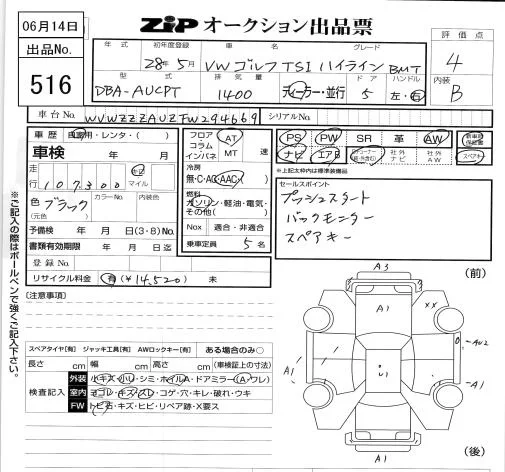 06月14日
ZiPオークション出品票
出品No.
516
評価点
4
内装
B
年式 初年度登録 車名 グレード
28年5月 VWゴルフTSI ハイライン BMT
型式 排気量 ドア ハンドル
DBA-AUCPT 1400 ディーラー・並行 5 左・右
車台No. WVWZZZAUZFW294669 シリアルNo.
車歴 自家用・レンタ・( )
車検 年 月
走行 107300 キロ マイル
色 ブラック カラーNo. 内装色
(元色)
予備検 年 月 日(3・8)No.
書類有効期限 年 月 日
登録No.
リサイクル料金 有(¥14,520) 未
フロア コラム インパネ AT MT 速
冷房
無・C・AC・AAC( )
燃料
ガソリン・軽油・電気・その他( )
Nox 適合・非適合
乗車定員 5名
PS PW SR 革 AW 新車時保証書
ナビ エアB 社外ナビ 社外AW スペアキー
※上記太枠内は標準装備品
セールスポイント
プッシュスタート
バックモニター
スペアキー
【注意事項】
スペアタイヤ【有】 ジャッキ工具【有】 AWロックキー【有】 ある場合のみ○
長さ cm 幅 cm 高さ cm (車検証上の寸法)
検査記入
外装 小キズ・小凹・シミ・ホイルA・ドアミラー(A・ワレ)
室内 ヨゴレ・キズ・スレ・コゲ・穴・キレ・破れ・ウキ
FW トビ石・キズ・ヒビ・リペア跡・X要ス
※ご記入の際はボールペンで強くご記入下さい。
(前)
A3
A1
XX
A1
U1
A1
A1
(後)